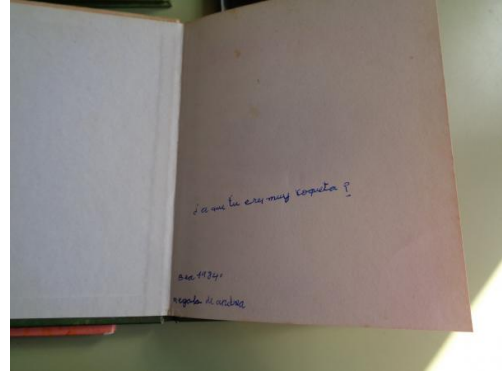 ¿a que tu eres muy coqueta?
1994.
regalo de andrea